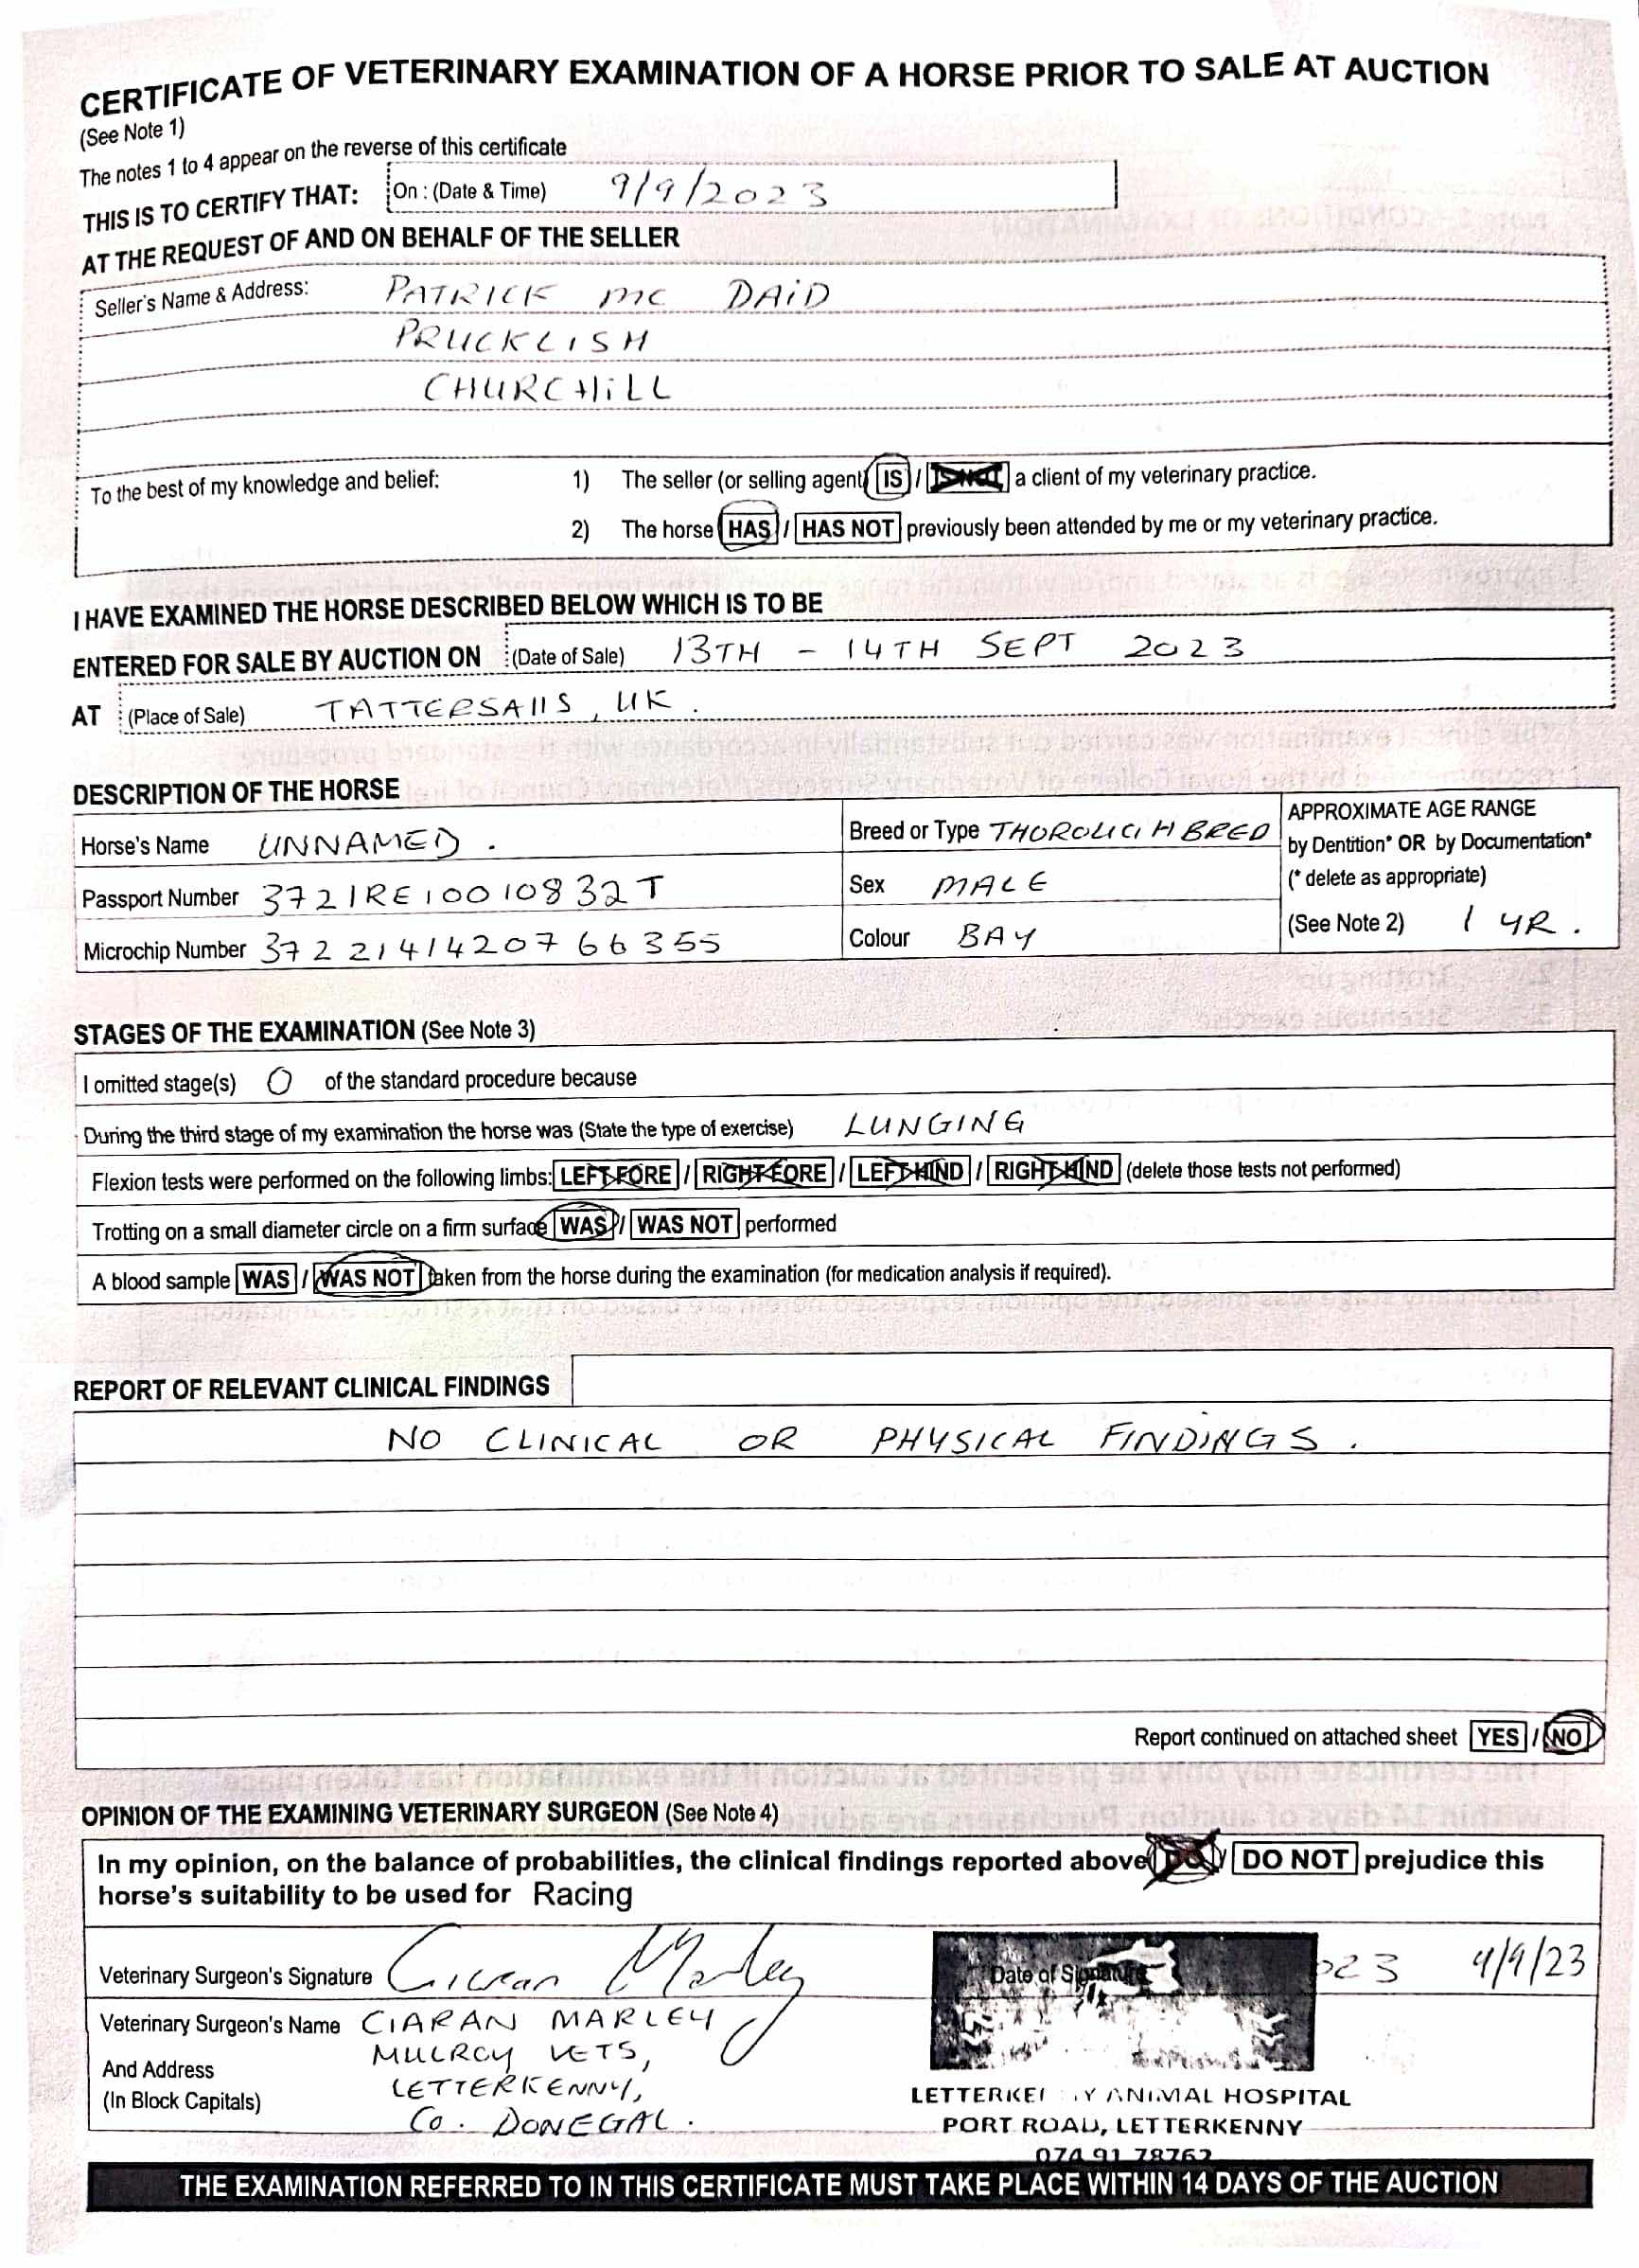 CERTIFICATE OF VETERINARY EXAMINATION OF A HORSE PRIOR TO SALE AT AUCTION
(See Note 1)
The notes 1 to 4 appear on the reverse of this certificate
THIS IS TO CERTIFY THAT: On : (Date & Time) 9/9/2023
AT THE REQUEST OF AND ON BEHALF OF THE SELLER
Seller's Name & Address: PATRICK MC DAID
PRUCKLISH
CHURCHILL
To the best of my knowledge and belief: 1) The seller (or selling agent) IS / IS NOT a client of my veterinary practice.
2) The horse HAS / HAS NOT previously been attended by me or my veterinary practice.
I HAVE EXAMINED THE HORSE DESCRIBED BELOW WHICH IS TO BE
ENTERED FOR SALE BY AUCTION ON (Date of Sale) 13TH - 14TH SEPT 2023
AT (Place of Sale) TATTERSAllS, UK.
DESCRIPTION OF THE HORSE
Horse's Name UNNAMED.
Passport Number 372IRE10010832T
Microchip Number 372 21414207 66355
Breed or Type THOROUGHBRED
Sex MALE
Colour BAY
APPROXIMATE AGE RANGE
by Dentition* OR by Documentation*
(* delete as appropriate)
(See Note 2) 1 YR.
STAGES OF THE EXAMINATION (See Note 3)
I omitted stage(s) 0 of the standard procedure because
During the third stage of my examination the horse was (State the type of exercise) LUNGING
Flexion tests were performed on the following limbs: LEFT FORE / RIGHT FORE / LEFT HIND / RIGHT HIND (delete those tests not performed)
Trotting on a small diameter circle on a firm surface WAS / WAS NOT performed
A blood sample WAS / WAS NOT taken from the horse during the examination (for medication analysis if required).
REPORT OF RELEVANT CLINICAL FINDINGS
NO CLINICAL OR PHYSICAL FINDINGS.
Report continued on attached sheet YES / NO
OPINION OF THE EXAMINING VETERINARY SURGEON (See Note 4)
In my opinion, on the balance of probabilities, the clinical findings reported above DO / DO NOT prejudice this
horse's suitability to be used for Racing
Veterinary Surgeon's Signature Ciaran Marley
Date of Signature 023 9/9/23
Veterinary Surgeon's Name CIARAN MARLEY
And Address MULROY VETS,
(In Block Capitals) LETTERKENNY,
Co. DONEGAL.
LETTERKENNY ANIMAL HOSPITAL
PORT ROAD, LETTERKENNY
074 91 78762
THE EXAMINATION REFERRED TO IN THIS CERTIFICATE MUST TAKE PLACE WITHIN 14 DAYS OF THE AUCTION